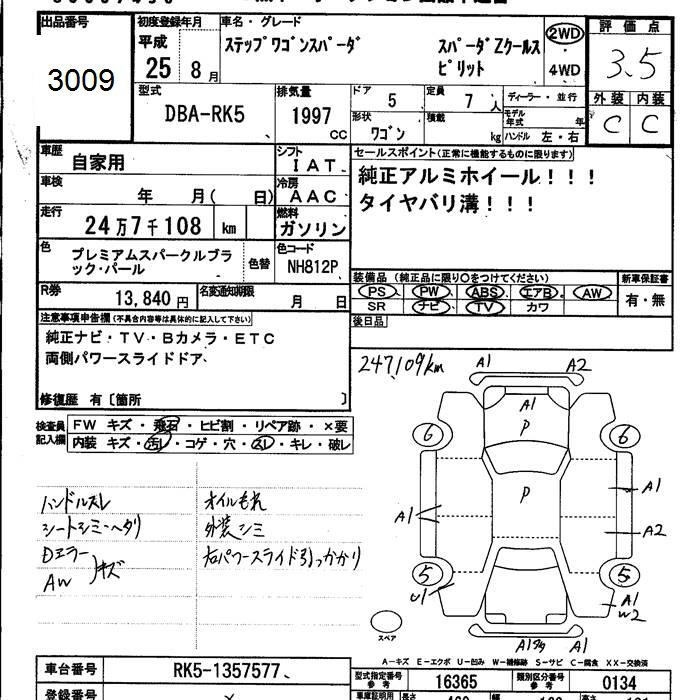 出品番号
3009
初度登録年月
平成
25 8月
車名・グレード
ステップワゴンスパーダ スパーダZクールスピリット
2WD
4WD
評価点
3.5
外装 内装
C C
型式
DBA-RK5
排気量
1997 CC
ドア 5
定員 7人
ディーラー・並行
形状 ワゴン
積載 kg
モデル年式 年
ハンドル 左・右
車歴 自家用
シフト IAT
車検 年 月( 日)
冷房 AAC
走行 24万7千108 km
燃料 ガソリン
セールスポイント(正常に機能するものに限ります)
純正アルミホイール!!!
タイヤバリ溝!!!
色 プレミアムスパークルブラック・パール
色替
色コード NH812P
R券 13,840円
名変通知期限 月 日
装備品 (純正品に限り○をつけてください)
PS PW ABS エアB AW
SR ナビ TV カワ
新車保証書
有・無
後日品
注意事項申告欄(不具合内容等は具体的に記入して下さい)
純正ナビ・TV・Bカメラ・ETC
両側パワースライドドア
修復歴 有〔箇所 〕
検査員記入欄
FW キズ・飛石・ヒビ割・リペア跡・×要
内装 キズ・汚レ・コゲ・穴・スレ・キレ・破レ
ハンドルスレ
シートシミ・ヘタリ
Dミラー
AW
キズ
オイルもれ
外装シミ
右パワースライド引っかかり
247,109km
A1 A2
A1
P
6 6
P
A1
A1
A2
5 5
U1
A1
W2
A1
スペア
A-キズ E-エクボ U-凹み W-補修跡 S-サビ C-腐食 XX-交換済
車台番号 RK5-1357577
型式指定番号 参考 16365
類別区分番号 参考 0134
登録番号
車庫証明用